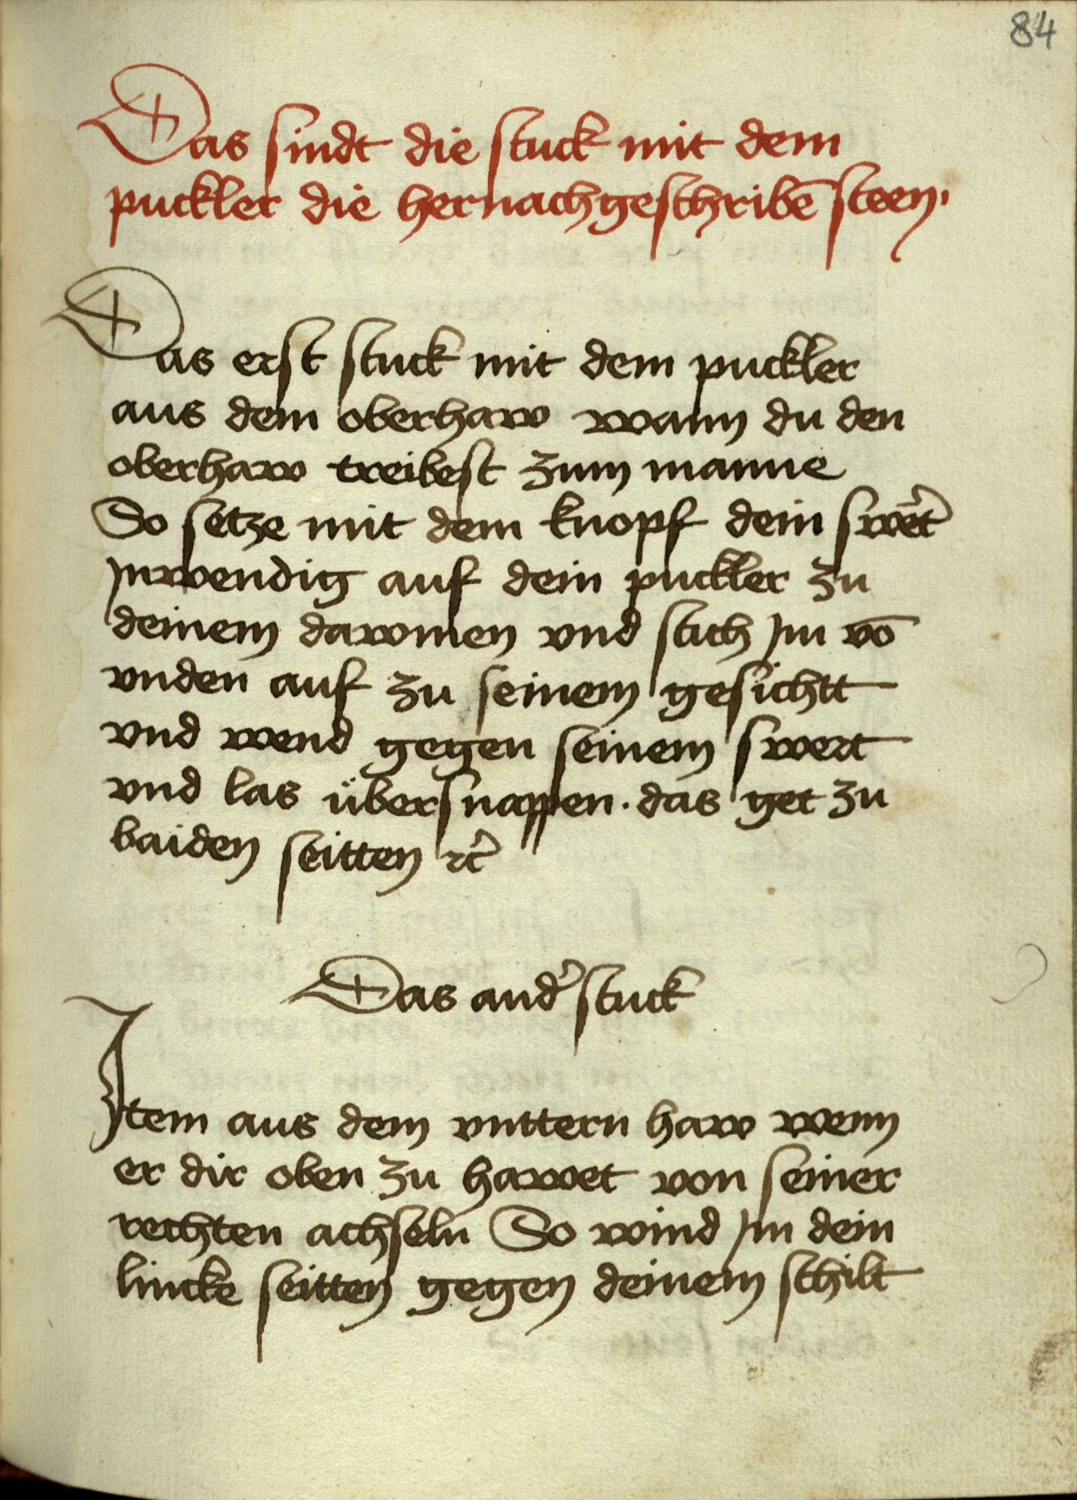 84
Das sindt die stuck mit dem
puckler die hernachgeschribē steen·
Das erst stuck mit dem puckler
aus dem oberhaw wann du den
oberhaw treibest zum manne
So setze mit dem knopf dein swert̄
Jnwendig auf dein puckler zu
deinem dawmen vnd stich Jm vō
vnden auf zu seinem gesichtt
vnd wend gegen seinem swert
vnd las übersnappen · das get zu
baiden seitten ꝛc̄
Das and̓ stuck
Jtem aus dem vnttern haw wenn
er dir oben zu hawet von seiner
rechten achseln So wind Jm dein
lincke seitten gegen deinem schilt